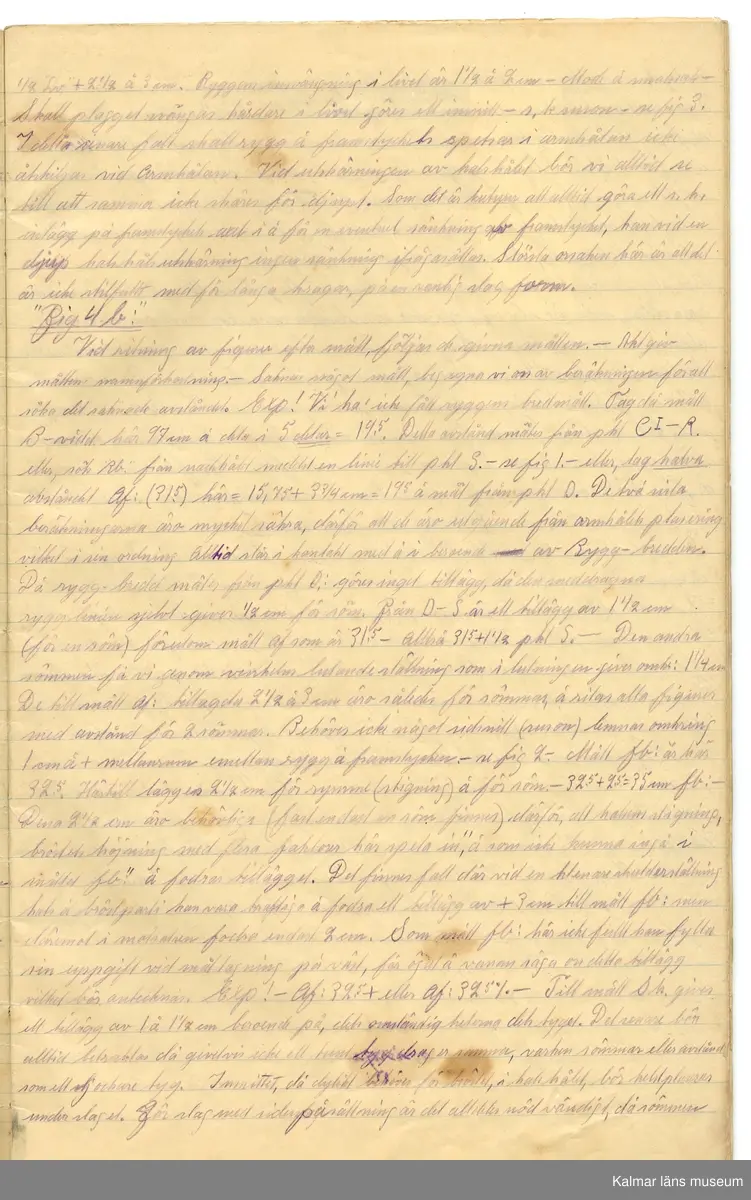 1/2 Liv + 2 1/2 à 3 cm. Ryggens insvängning i livet är 1 1/2 à 2 cm – Mode å smaksak –
Skall plagget svängas hårdare i livet göres ett insnitt – s, k – se fig 3.
I detta senare fall skall rygg å framstyckets spetsar i armhålan icke
åtskiljas vid armhålan. Vid utskärningen av halshålet bör vi alltid se
till att samma icke skäres för djupt. Som det är kutym att alltid göra ett s. k.
inlägg på framstyckets axel i å för en eventuel sänkning av framstycket, kan vid en
djup halshåls utskärning ingen sänkning ifrågasättas. Största orsaken här är att det
är icke stilfullt med för långa kragar, på en vanlig slag form.
"Fig 4 b:"
Vid ritning av figurer efter mått, följas de givna måtten. – Akt giv
måttens namnförkortning. – Saknas något mått, begagna vi oss av beräkningen för att
söka det saknade avståndet. Exp! Vi ha' icke fått ryggens breddmått. Tag då mått
B – vidd här 97 cm å dela i 5 delar = 19.5. Detta avstånd mätes från pkt C I – R.
eller, sök Rb: från nackhålet nedåt en linie till pkt S. – se fig 1. – eller, tag halva
avståndet Af: (31.5) här = 15,75 + 3 3/4 cm = 19.5 å mät från pkt O. De två sista
beräkningarna äro mycket säkra, därför att de äro utgående från armhålets plasering
vilket i sin ordning alltid står i kontakt med å i beroende av Rygg-bredden.
Då rygg-bredd mätes från pkt O,: göres inget tillägg, då den
rygg linien sjelvt giver 1/2 cm för söm. Från O – S är ett tillägg av 1 1/2 cm
(för en söm) förutom mått Af som är 31.5 – alltså 31.5 + 1 1/2 pkt S. – Den andra
sömmen få vi genom vinkelns lutande ställning som i lutningen giver omkr: 1 1/4 cm
De till mått Af: tillagda 2 1/2 à 3 cm äro således för sömmar, å ritas alla figurer
med avstånd för 2 sömmar. Behöves icke något sidsnitt lemnas omkring
1 cm å + mellanrum emellan rygg å framstycken. – se fig 2 – Mått fb: är här
32.5. Härtill lägges 2 1/2 cm för rymme (stigning) å för söm. – 32.5 + 2.5 = 35 cm fb: –
Dessa 2 1/2 cm äro behövliga (fast endast en söm finnes) därför, att halsens stigning,
bröstets höjning med flera faktorer här spela in", å som icke kunna ingå i
måttet fb:" å fodras tillägget. Det finnes fall där vid en klenare skulderställning
hals å bröstparti kan vara kraftiga å fodra ett tillägg av + 3 cm till mått fb: men
däremot i motsatsen fodra endast 2 cm. Som mått fb: här icke fullt kan fylla
sin uppgift vid måttagning på väst, får ögat å vanan säga om detta tillägg
vilket bör antecknas. Exp! – Af: 32.5 + eller Af: 32.5 %. – Till mått Sk. gives
ett tillägg av 1 à 1 1/2 cm beroende på, dels omständigheterna dels tyget. Det senare bör
alltid betraktas då givetvis icke ett samma, varken sömmar eller avstånd
som ett tjockare tyg. Insnittet, då dylikt behöves för bröstet, i halshålet, bör helst placeras
under slaget. För slag med siden påsättning är det alldeles nödvändigt, då sömmen
Kalmar läns museum